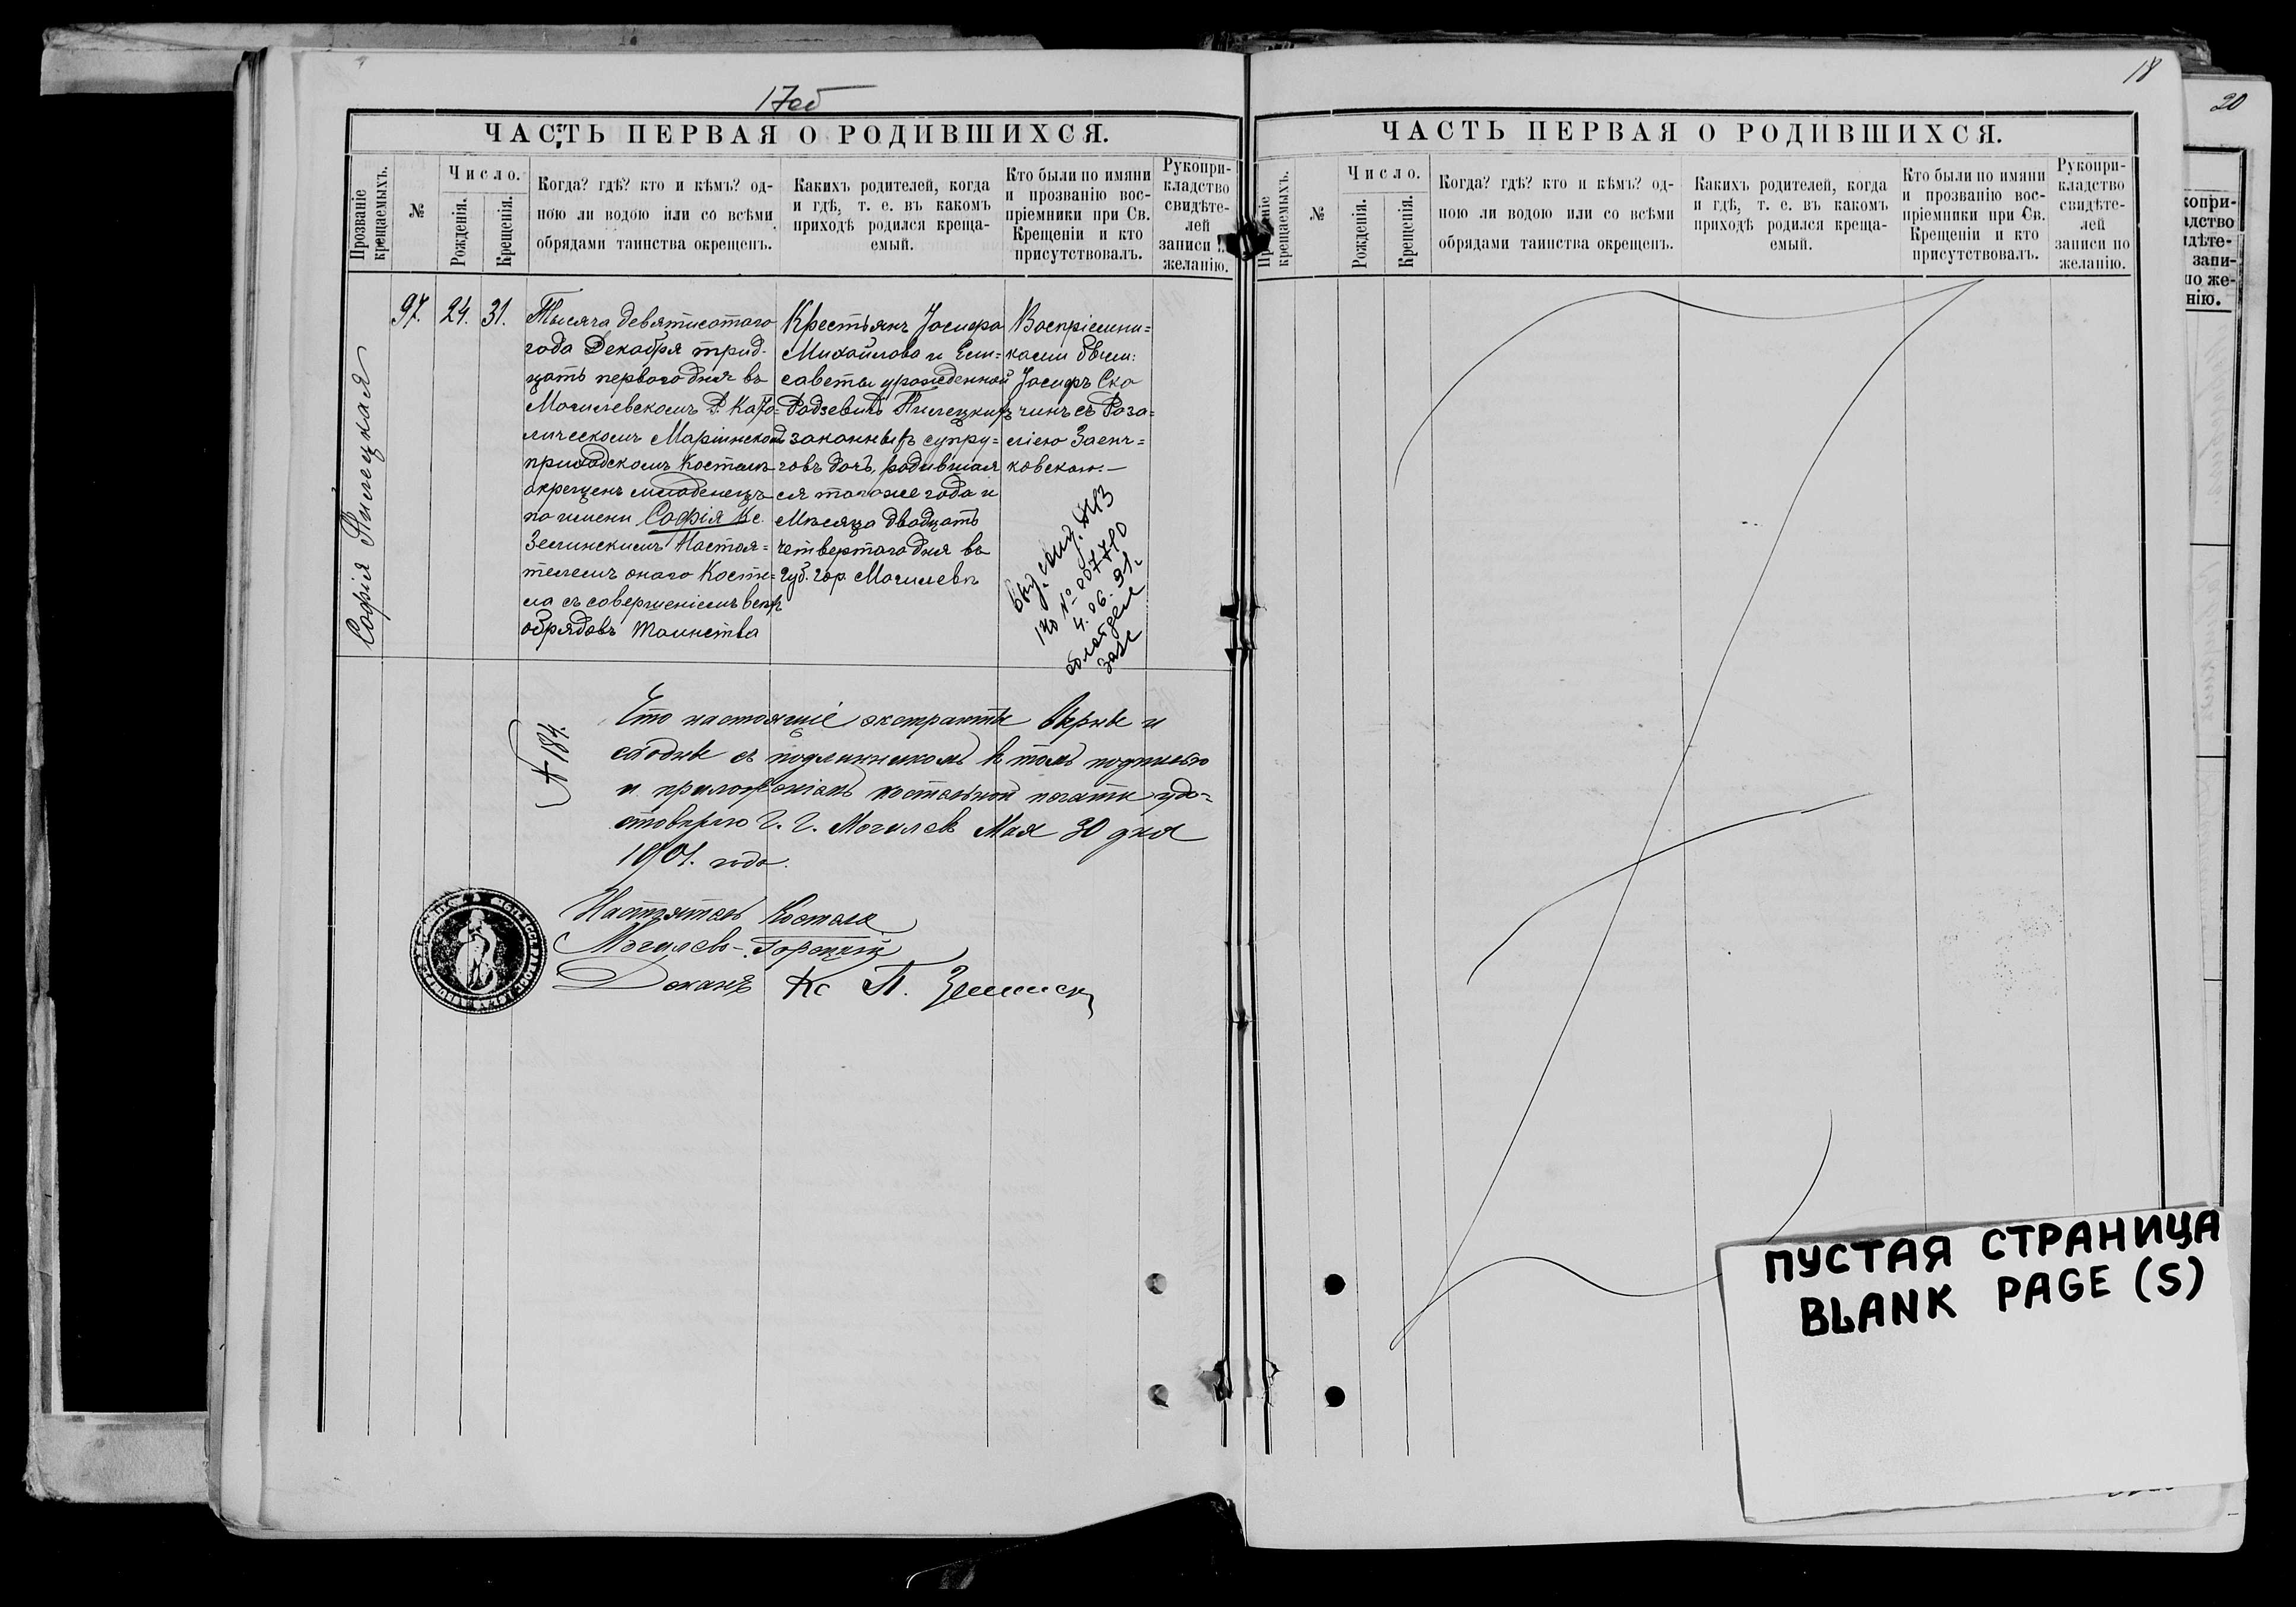 17об
ЧАСТЬ ПЕРВАЯ О РОДИВШИХСЯ.
Прозваніе крещаемыхъ.
№
Число.
Рожденія.
Крещенія.
Когда? гдѣ? кто и кѣмъ? од-
ною ли водою или со всѣми
обрядами таинства окрещенъ.
Какихъ родителей, когда
и гдѣ, т. е. въ какомъ
приходѣ родился креща-
емый.
Кто были по имяни
и прозванію вос-
пріемники при Св.
Крещеніи и кто
присутствовалъ.
Рукопри-
кладство
свидѣте-
лей
записи
желанію.
Софія Пилецкая
97.
24.
31.
Тысяча девятисотаго
года Декабря трид-
цать перваго дня въ
Могилевскомъ Р. Като-
лическомъ Маріинском
приходскомъ Костелѣ
окрещенъ младенецъ
по имени Софія Кс.
Земинскимъ Настоя=
телемъ онаго Косте=
ла съ совершеніемъ всѣхъ
обрядовъ таинства
Крестьянъ Іосифа
Михайлова и Ели=
саветы урожденной
Радзевичъ Пилецкихъ
законныхъ супру=
говъ дочь, родившая
ся тогоже года и
Мѣсяца двадцать
четвертаго дня въ
губ. гор. Могилевѣ
Воспріемни=
ками были:
Іосифъ Ско
чинъ съ Роза=
ліею Заенч=
ковскою.—
№ 007710
4.06.91г
облотдел
загс
№ 184.
Что настоящіе экстракты вѣрны и
сходны съ подлинникомъ въ томъ подписью
и приложеніемъ костельной печати удо=
стовѣряю Г. Г. Могилевъ Мая 30 дня
1901. года.
Настоятель Костела
Могилево-Горецкій
Деканъ Кс П.
18
ЧАСТЬ ПЕРВАЯ О РОДИВШИХСЯ.
крещаемыхъ.
№
Число.
Рожденія.
Крещенія.
Когда? гдѣ? кто и кѣмъ? од-
ною ли водою или со всѣми
обрядами таинства окрещенъ.
Какихъ родителей, когда
и гдѣ, т. е. въ какомъ
приходѣ родился креща-
емый.
Кто были по имяни
и прозванію вос-
пріемники при Св.
Крещеніи и кто
присутствовалъ.
Рукопри-
кладство
свидѣте-
лей
записи по
желанію.
20
копри-
адство
идѣте-
запи-
по же-
нію.
ПУСТАЯ СТРАНИЦА
BLANK PAGE (S)